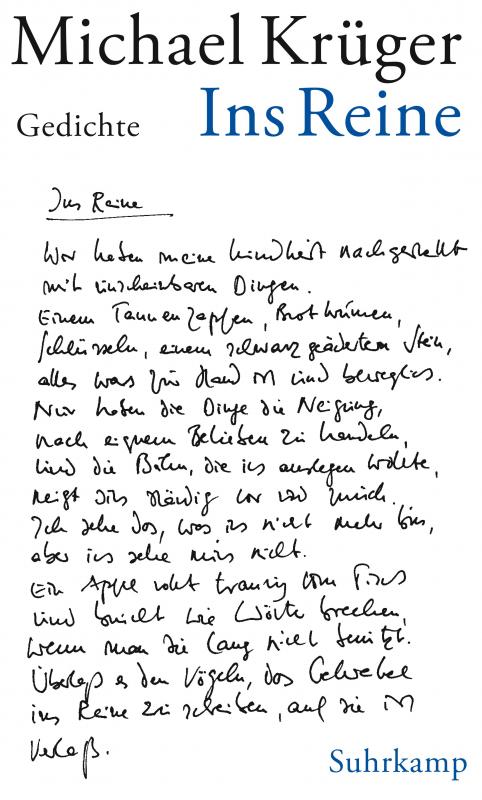 Michael Krüger
Gedichte
Ins Reine
Ins Reine
Wir haben meine Kindheit nachgestellt
mit unscheinbaren Dingen.
Einem Tannenzapfen, Brotkrümen,
Schlüsseln, einem schwarz geäderten Stein,
alles was zur Hand ist und beweglich.
Nur haben die Dinge die Neigung,
nach eigenem Belieben zu handeln,
und die Bahn, die ich auslegen wollte,
neigt sich ständig vor und zurück.
Ich sehe das, was ich nicht mehr bin,
aber ich sehe mich nicht.
Ein Apfel rollt traurig vom Tisch
und bricht wie Wörter brechen,
wenn man sie lang nicht benützt.
Überlaß es den Vögeln, das Gekrakel
ins Reine zu schreiben, auf sie ist
Verlaß.
Suhrkamp